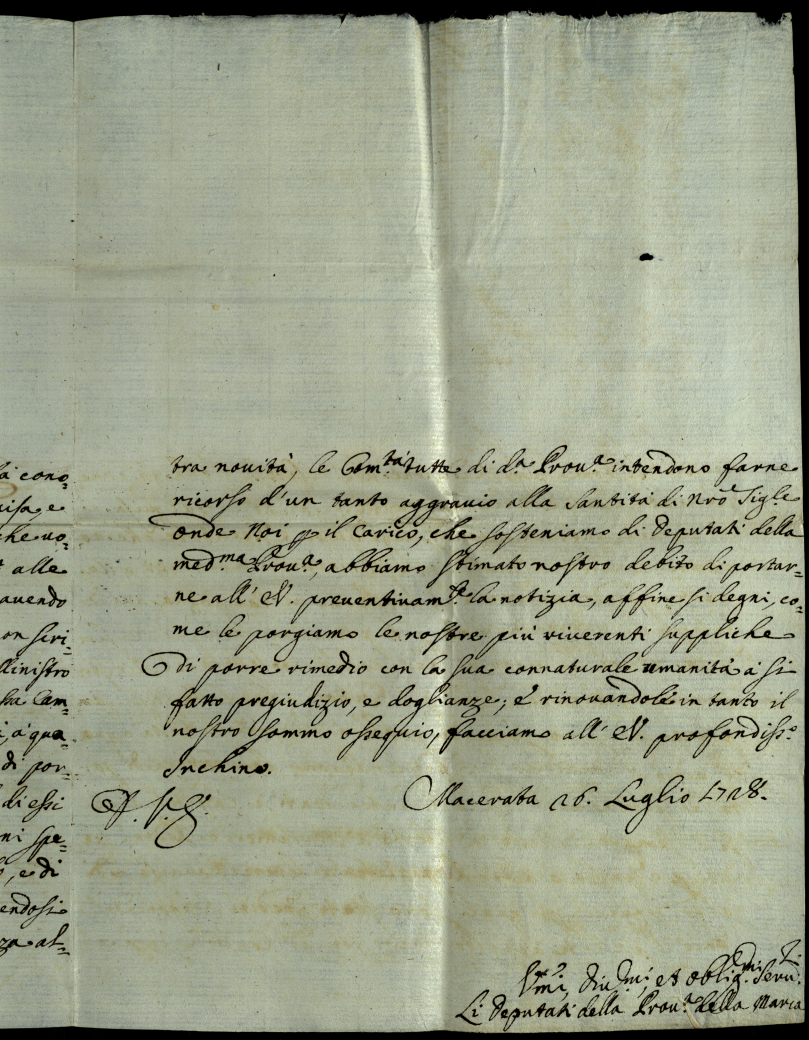 là cono=
uisa, e
che uo=
alle
auendo
on scri=
Ministro
sta Cam=
a qua=
di por=
di essi
ni spe=
, e di
endosi
za al=
tra nouità, le Com.tà tutte di d.a Prou.a intendono farne
ricorso d'un tanto aggrauio alla Santità di Nro Sig.re
onde Noi p il Carico, che sosteniamo di Deputati della
med.ma Prou.a, abbiamo stimato nostro debito di portar=
ne all' EV. preuentiuam.te la notizia, affine si degni, co=
me le porgiamo le nostre più riuerenti suppliche
di porre rimedio con la sua connaturale umanità à si
fatto pregiudizio, e doglianze; e rinouandole in tanto il
nostro sommo ossequio, facciamo all' EV. profondiss.o
Inchino.
Macerata 26. Luglio 1728.
et oblig.mi Seru.
Li Deputati della Prou.a della Marca